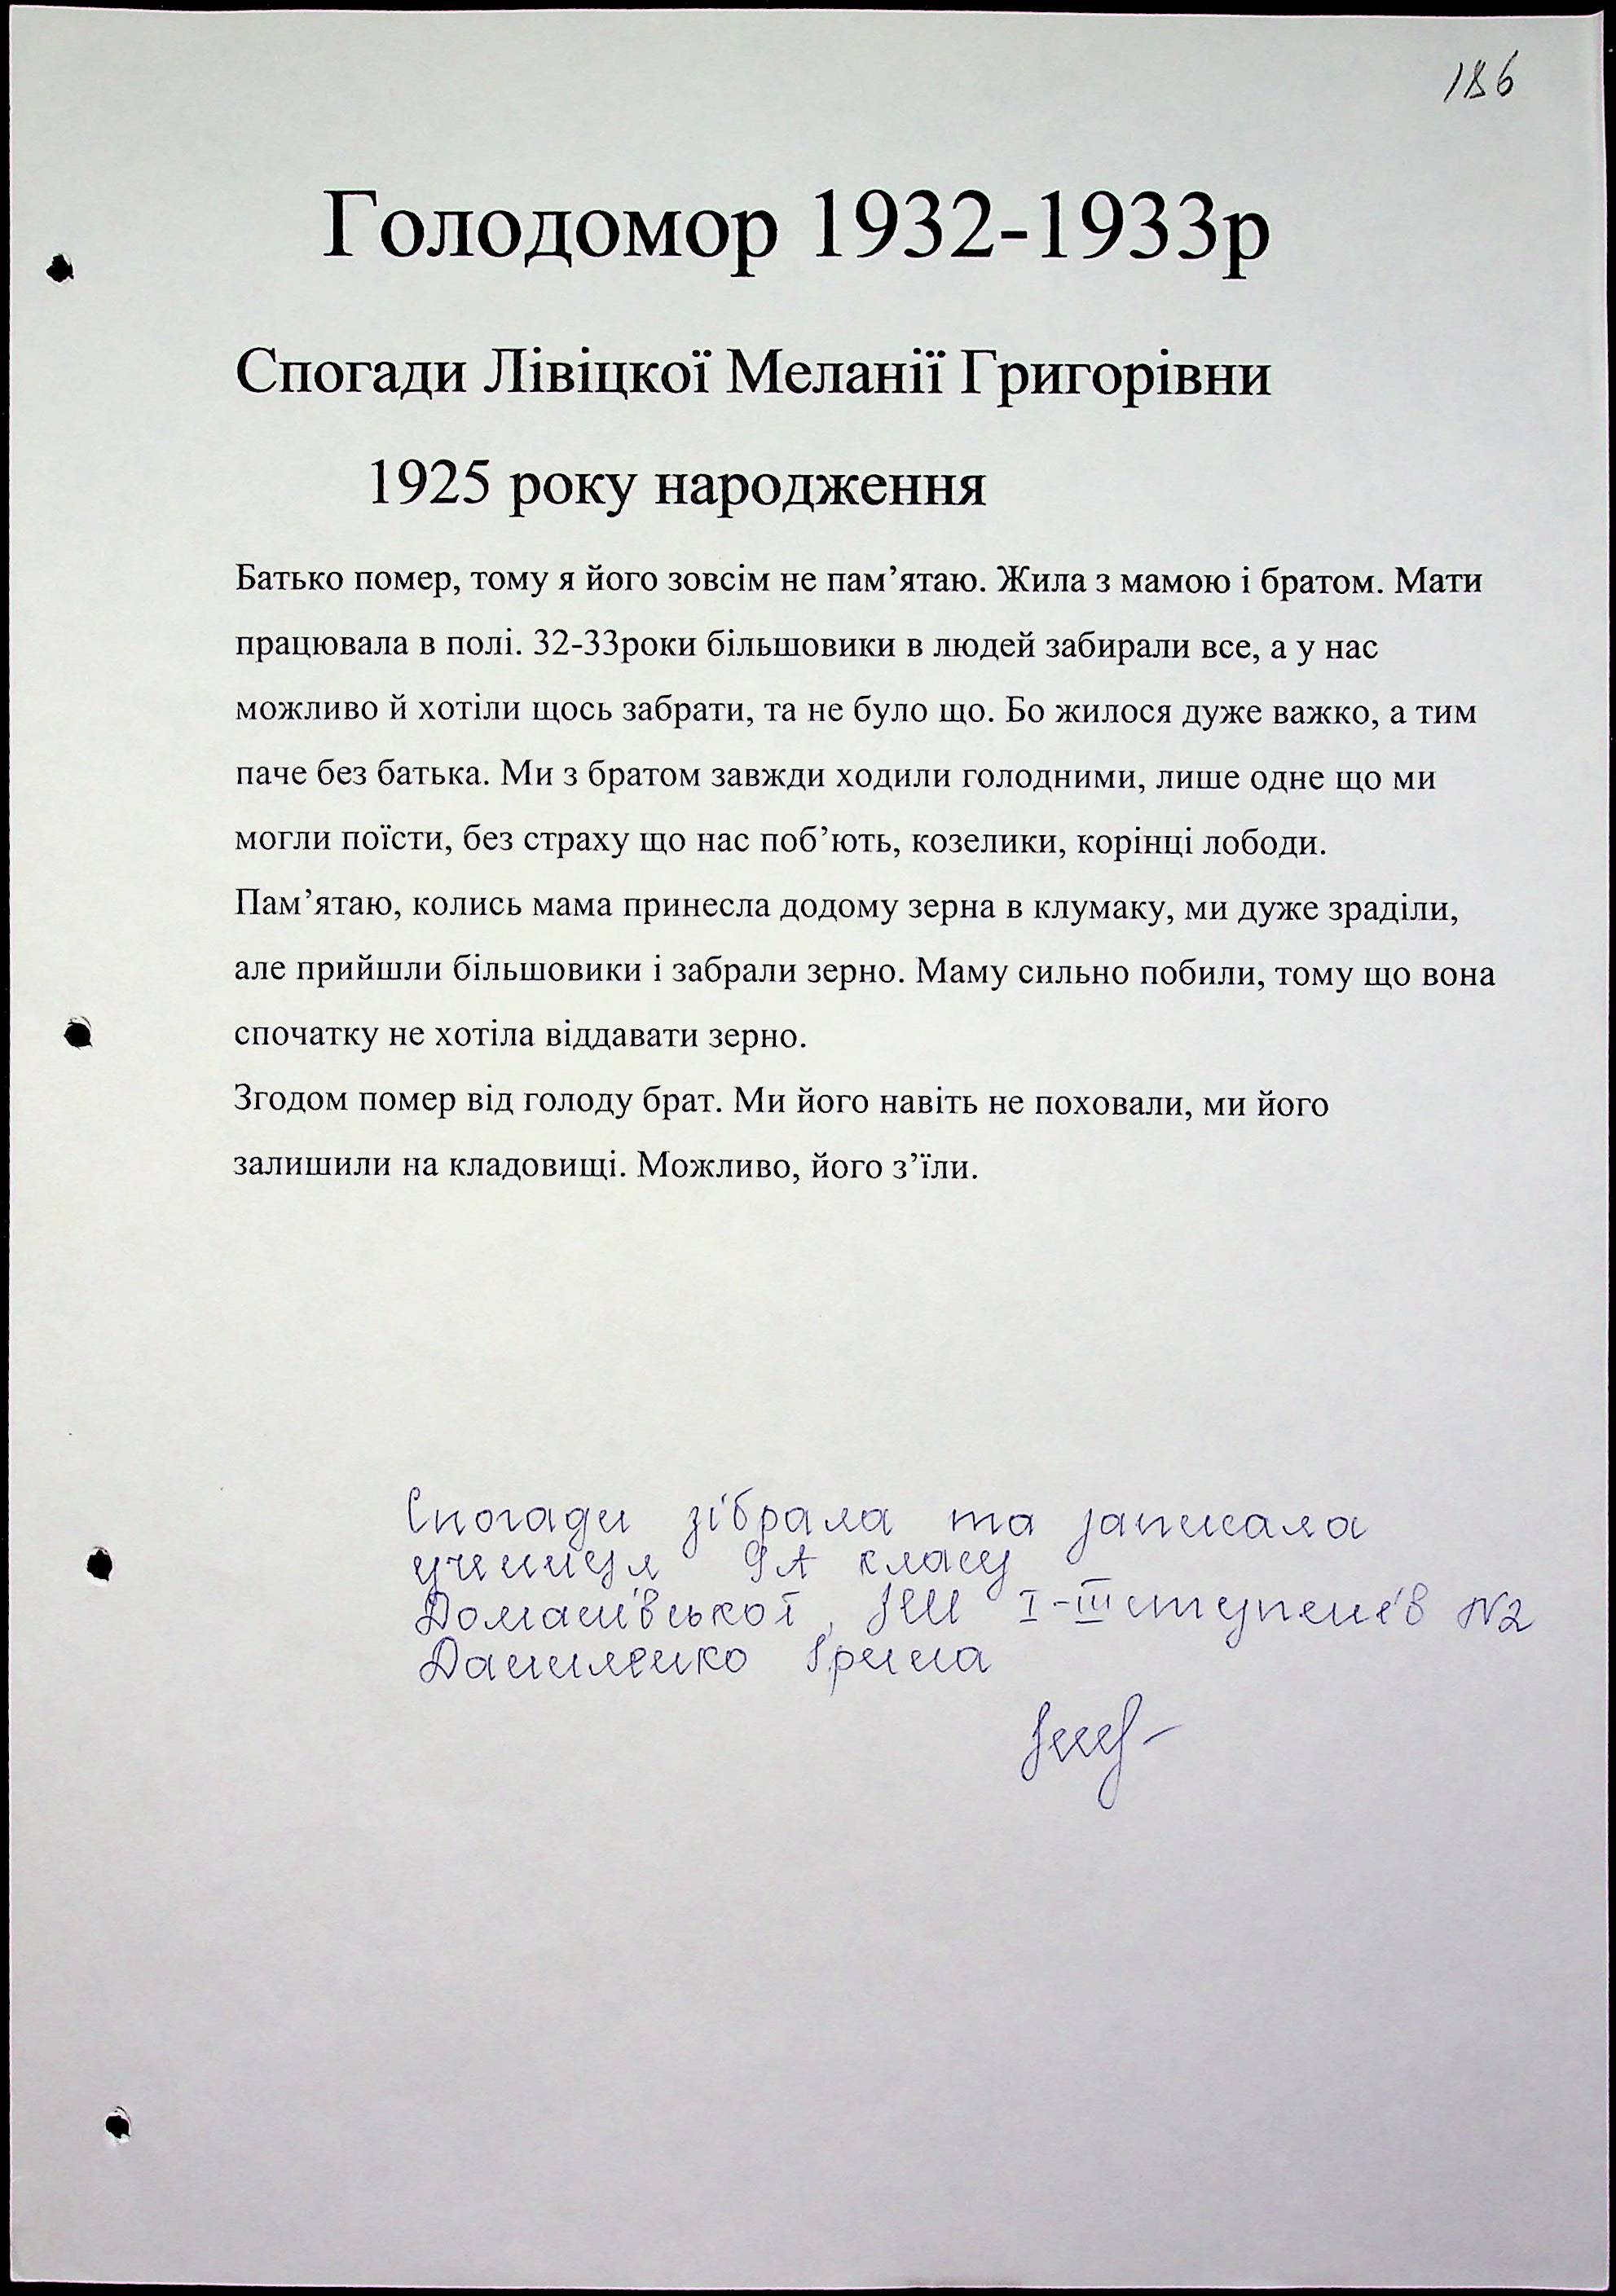 186
Голодомор 1932-1933р
Спогади Лівіцкої Меланії Григорівни
1925 року народження
Батько помер, тому я його зовсім не пам’ятаю. Жила з мамою і братом. Мати
працювала в полі. 32-33роки більшовики в людей забирали все, а у нас
можливо й хотіли щось забрати, та не було що. Бо жилося дуже важко, а тим
паче без батька. Ми з братом завжди ходили голодними, лише одне що ми
могли поїсти, без страху що нас поб’ють, козелики, корінці лободи.
Пам’ятаю, колись мама принесла додому зерна в клумаку, ми дуже зраділи,
але прийшли більшовики і забрали зерно. Маму сильно побили, тому що вона
спочатку не хотіла віддавати зерно.
Згодом помер від голоду брат. Ми його навіть не поховали, ми його
залишили на кладовищі. Можливо, його з’їли.
Спогади зібрала та записала
учениця 9А класу
Домашівської ЗШ I-III ступенів №2
Даниленко Ірина